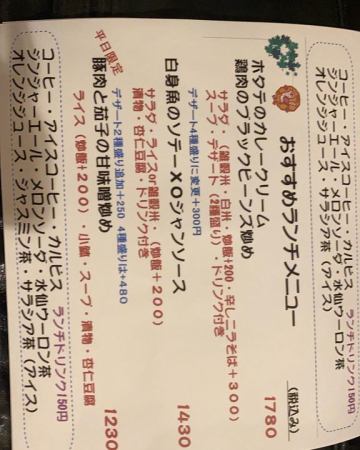 おすすめランチメニュー
(税込み)
ホタテのカレークリーム
鶏肉のブラックビーンズ炒め
1780
サラダ・(選穀米・白米・炒飯+200・辛しニラそば+300)
スープ・デザート(2種盛り)・ドリンク付き
デザート4種盛りに変更+300円
白身魚のソテーXOジャンソース
1430
サラダ・ライスor雑穀米・(炒飯+200)
漬物・杏仁豆腐・ドリンク付き
デザート2種盛り追加+250 4種盛りは+480
平日限定
豚肉と茄子の甘味噌炒め
1230
ライス(炒飯+200)・小鉢・スープ・漬物・杏仁豆腐
ランチドリンク150円
コーヒー・アイスコーヒー・カルピス
ジンジャーエール・メロンソーダ・水仙ウーロン茶
オレンジジュース・ジャスミン茶・サラシア茶(アイス)
ランチドリンク150円
コーヒー・アイスコーヒー・カルピス
ジンジャーエール・メロンソーダ・水仙ウーロン茶
オレンジジュース・ジャスミン茶・サラシア茶(アイス)